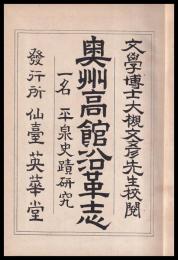 文學博士大槻文彦先生校閲
奥州高館沿革志
一名 平泉史蹟研究
發行所 仙臺 英華堂